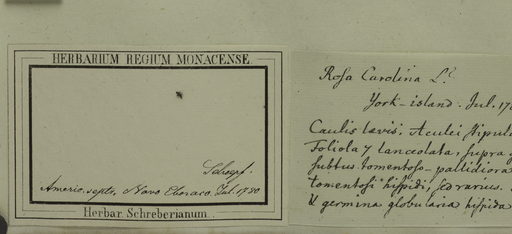 HERBARIUM REGIUM MONACENSE
Schoepf.
Americ. septr. Novo Eboraco. Jul. 1780
Herbar. Schreberianum.
Rosa Carolina L.
York-island. Jul. 17
Caulis laevis. Aculei stipul
Foliola 7 lanceolata, supra
subtus tomentoso-pallidiora
tomentosi hispidi, sed rarius.
& germina globularia hispida